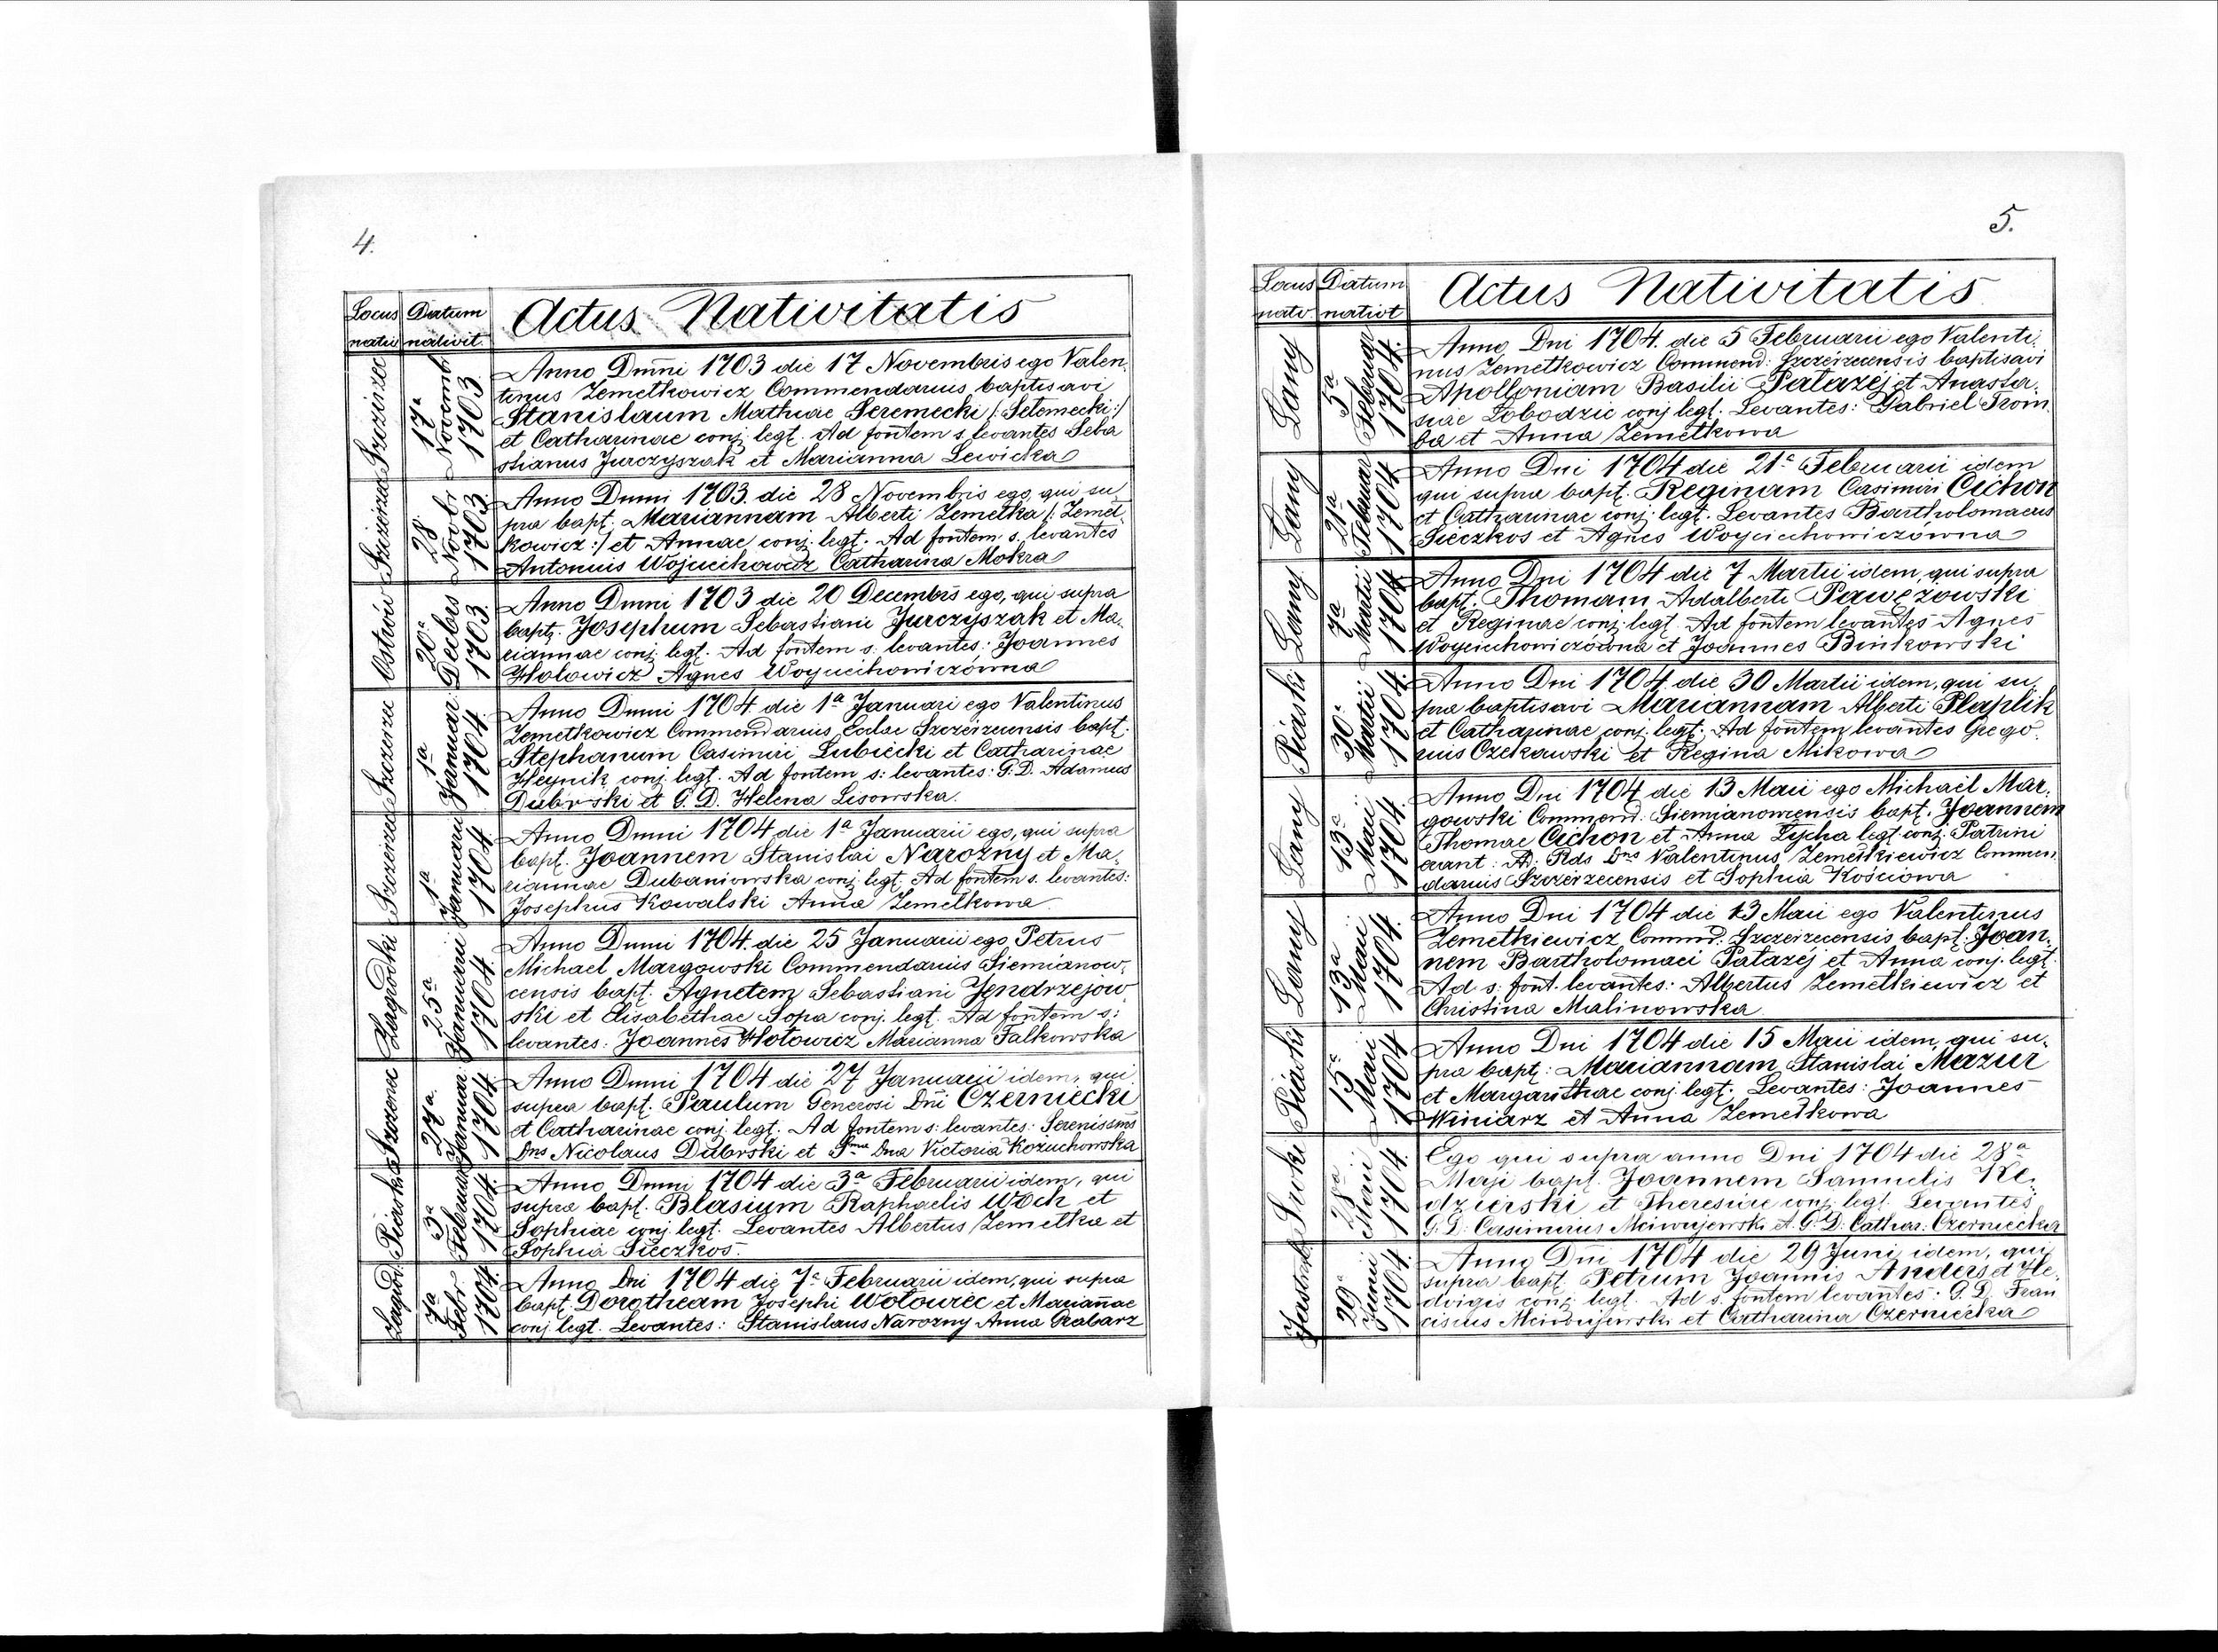 4.
Locus Datum Actus Nativitatis
nativ nativit.
Szczerzec
17a Novembr 1703
Anno Dmni 1703 die 17 Novembris ego Valen-
tinus Zemełkowicz Commendarius baptisavi
Stanislaum Mathiae Seremecki /: Setemecki :/
et Catharinae conj. legt. Ad fontem s. levantes Seba
stianus Jurczyszak et Marianna Lewicka
28 Novbr 1703
Anno Dmni 1703. die 28 Novembris ego, qui su
pra bapt. Mariannam Alberti Zemełka /: Zemeł-
kowicz :/ et Annae conj. legt. Ad fontem s. levantes
Antonius Wojciechowicz Catharina Mokra
Ostrów
20a Decbris 1703.
Anno Dmni 1703 die 20 Decembris ego, qui supra
bapt. Josephum Sebastiani Jurczyszak et Ma-
riannae conj. legt. Ad fontem s. levantes: Joannes
Hołowicz Agnes Woyciechowiczówna
1a Januar 1704.
Anno Dmni 1704. die 1a Januari ego Valentinus
Zemełkowicz Commendarius Eclae Szczerzecensis bapt.
Stephanum Casimiri Lubiecki et Catharinae
Heynik conj. legt. Ad fontem s: levantes: G. D. Adamus
et G. D. Helena Lisowska.
1a Januarii 1704.
Anno Dmni 1704 die 1a Januarii ego, qui supra
bapt. Joannem Stanislai Narożny et Ma-
riannae Dubaniowska conj. legt. Ad fontem s. levantes:
Josephus Kowalski Anna Zemełkowa.
Zagrodki
25a Januarii 1704.
Anno Dmni 1704. die 25 Januarii ego Petrus
Michael Margowski Commendarius Siemianow-
censis bapt. Agnetem Sebastiani Jendrzejow
ski et Elisabethae Sopa conj. legt. Ad fontem s:
levantes: Joannes Hołowicz Marianna Falkowska
27a Januar 1704.
Anno Dmni 1704 die 27 Januarii idem, qui
supra bapt. Paulum Generosi Dni Czerniecki
et Catharinae conj. legt. Ad fontem s: levantes: Serenissms
Dns Nicolaus et Dna Victoria Kożuchowska
Piaski
3a Februar 1704.
Anno Dmni 1704 die 3a Februarii idem, qui
supra bapt. Blasium Raphaelis Woch et
Sophiae conj. legt. Levantes Albertus Zemełka et
Sophia Sieczkos.
7a Febr 1704.
Anno Dni 1704 die 7a Februarii idem, qui supra
bapt. Dorotheam Josephi Wołowiec et Mariannae
conj. legt. Levantes: Stanislaus Narożny Anna Grabarz
5.
Locus Datum Actus Nativitatis
nativ nativt
Łany
5a Februar 1704.
Anno Dni 1704. die 5 Februarii ego Valenti-
nus Zemełkowicz Commend: Szczerzecensis baptisavi
Apolloniam Basilii Pałazéj et Anasta-
siae Łobodzic conj. legt. Levantes: Gabriel Troim
ba et Anna Zemełkowa
Łany
21a Februar 1704
Anno Dni 1704 die 21a Februarii idem
qui supra bapt. Reginam Casimiri Cichon
et Catharinae conj. legt. Levantes Bartholomaeus
Sieczkos et Agnes Woyciechowiczówna
Łany
7a Martii 1704
Anno Dni 1704 die 7 Martii idem, qui supra
bapt. Thomam Adalberti Pawężowski
et Reginae conj. legt. Ad fontem levantes Agnes
Woyciechowiczówna et Joannes Binkowski
Piaski
30a Martii 1704.
Anno Dni 1704. die 30 Martii idem, qui su-
pra baptisavi Mariannam Alberti Płaplik
et Catharinae conj. legt. Ad fontem levantes Grego-
rius Czekawski et Regina Mikowa
Łany
13a Maii 1704.
Anno Dni 1704 die 13 Maii ego Michaël Mar-
gowski Commend. Siemianowcensis bapt. Joannem
Thomae Cichon et Anna Zycha legt. conj. Patrini
erant: A. Rds Dns Valentinus Zemełkiewicz Commen-
darius Szczerzecensis et Sophia Kościowa
Łany
13a Maii 1704.
Anno Dni 1704 die 13 Maii ego Valentinus
Zemełkiewicz Commd: Szczerzecensis bapt. Joan-
nem Bartholomaei Pałazéj et Anna conj. legt.
Ad s: font. levantes: Albertus Zemełkiewicz et
Christina Malinowska
Piaski
15a Maii 1704
Anno Dni 1704 die 15 Maii idem, qui su-
pra bapt: Mariannam Stanislai Mazur
et Margarithae conj. legt. Levantes: Joannes
Winiarz et Anna Zemełkowa
28a Maii 1704.
Ego qui supra anno Dni 1704 die 28a
Maji bapt. Joannem Samuelis Ke-
dzierski et Theresiae conj. legt. Levantes
G. D. Casimirus et G. D: Cathar. Czerniecka
29a Junii 1704.
Anno Dni 1704 die 29 Juni idem, qui
supra bapt. Petrum Joannis Anders et He-
dvigis conj. legt. Ad s. fontem levantes: G. D. Fran
ciscus et Catharina Czerniecka